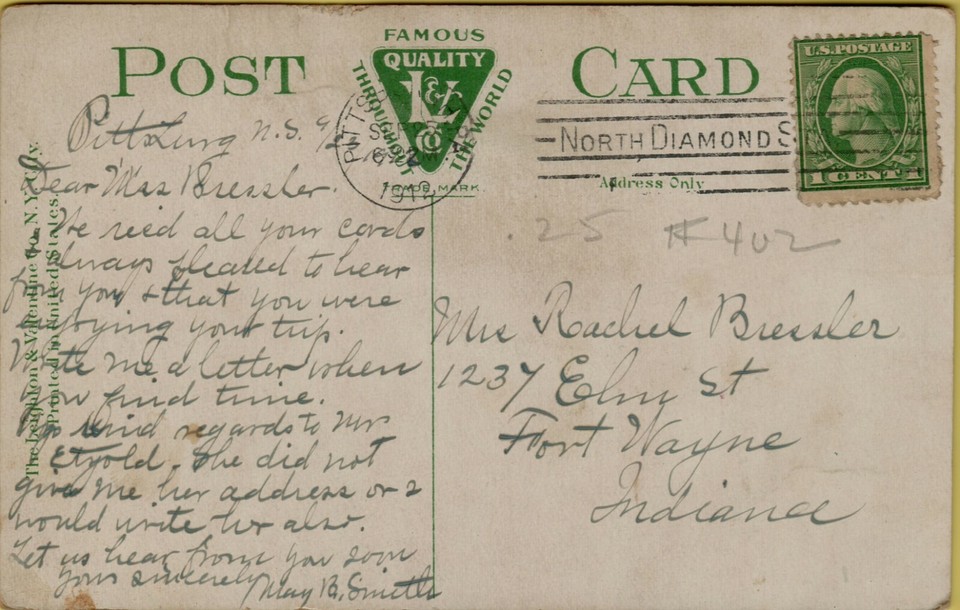 FAMOUS
QUALITY
L & V Co
THROUGHOUT THE WORLD
TRADE MARK.
POST CARD
U.S. POSTAGE
1 CENT 1
PITTSBURGH
SEP
PM
NORTH DIAMOND S
Address Only
The Leighton & Valentine Co. N.Y. City.
Printed in United States.
Pittsburg N.S.
Dear Mrs Bressler.
We recd all your cards
Always pleased to hear
from you & that you were
enjoying your trip.
Write me a letter when
you find time.
My kind regards to Mrs
Etzold. She did not
give me her address or I
would write her also.
Let us hear from you soon
yours sincerely
May B. Smith
.25 #402
Mrs Rachel Bressler
1237 Elm St
Fort Wayne
Indiana